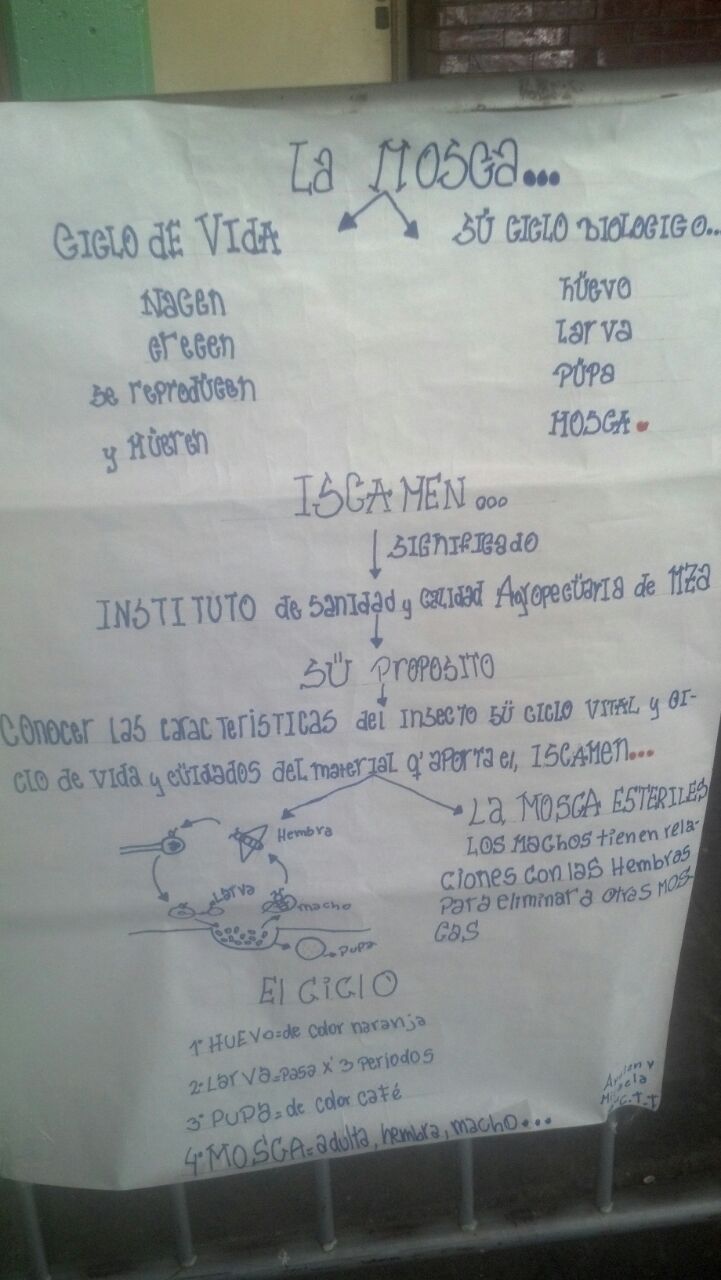 La MOSCa...
CICLO dE VIdA
Nacen
crecen
se reprodücen
y Müeren
SÜ CICLO BIOLOGICO...
hüevo
Larva
PÜPa
MOSCA.
ISCAMEN...
SIGNIFIcado
INSTITUTO de sanidad y calidad Agropecüaria de MZa
SÜ PROPOSITO
Conocer Las caracTerísTicas del insecto sü ciclo VITAL y ci-
clo de vida y cüidados del material q' aporTa el, ISCAMEN...
Hembra
Larva
macho
PUPa
La MOSCA ESTERILES
LOS Machos tienen rela-
ciones con las Hembras
Para eliminar a otras MOS
Cas
El CiClO
1º HUEVO=de color naranja
2º Larva=Pasa x' 3 Periodos
3º PUPa=de color café
4º MOSCA=adulta, hembra, macho...
y
C.T.T